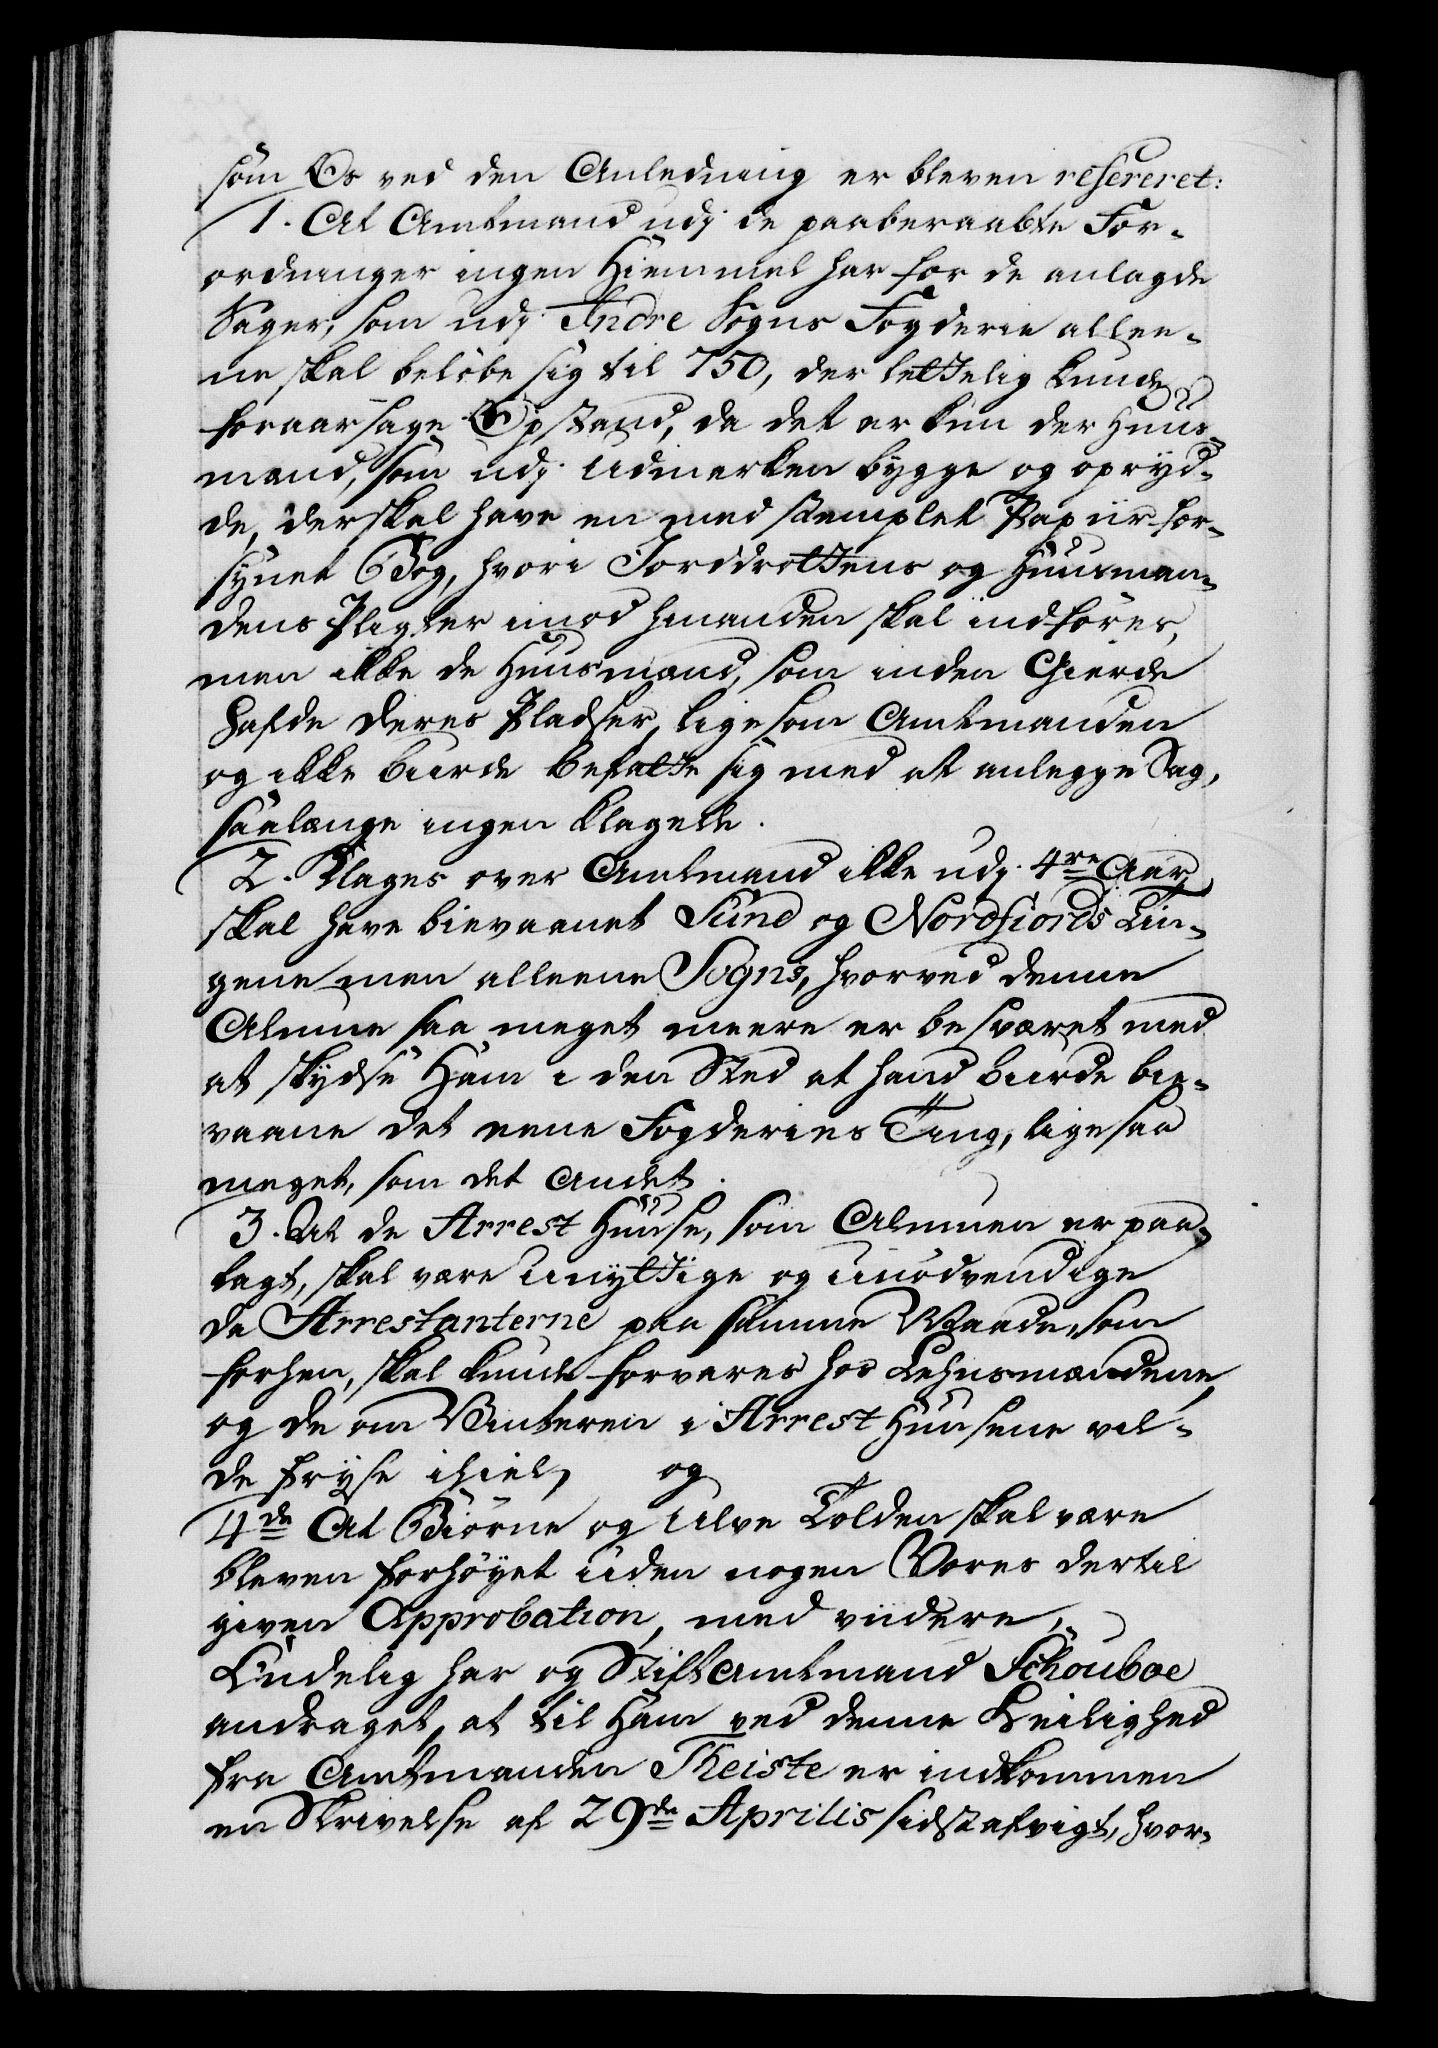 som Os ved den Anledning er bleven refereret:
1. At Amtmand udj de paaberaabte For-
ordninger ingen Hiemmel har for de anlagde
Sager, som udj Indre Sogns Fogderie allee-
ne skal beløbe sig til 750, der lettelig kunde
foraarsage Opstand, da det er kun der Huus-
mænd, som udj Udmarken bygge og opryd-
de, der skal have en med stemplet Papiir for-
synet Bog, hvori Jorddrottens og Huusman-
dens Pligter imod hinanden skal indføres,
men ikke de Huusmænd, som inden Gierde
hafde deres Pladser, ligesom Amtmanden
og ikke burde befatte sig med at anlegge Sag,
saalænge ingen klagede.
2. Klages over Amtmand ikke udj 4re Aar
skal have bievaanet Sund og Nordfiords Tin-
gene men alleene Sogns, hvorved denne
Almue saa meget meere er besværet med
at skydse Ham i den Sted at hand burde bie-
vaane det eene Fogderies Ting, ligesaa
meget, som det Andet.
3. At de Arrest Huuse, som Almuen er paa-
lagt, skal være unyttige og unødvendige
da Arrestanterne paa samme Maade, som
forhen, skal kunde forvares hos Lehnsmændene,
og de om Vinteren i Arrest Huusene vil-
de fryse ihiel, og
4de At Biørne og Ulve Tolden skal være
bleven forhøyet uden nogen Vores dertil
given Approbation, med viidere,
Endelig har og Stiftamtmand Schouboe
andraget, at til Ham ved denne Leilighed
fra Amtmanden Theiste er indkommen
en Skrivelse af 29de Aprilis sidstafvigt, hvor-